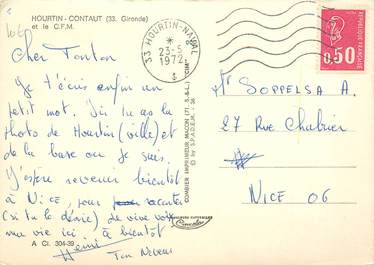 HOURTIN - CONTAUT (33. Gironde)
et le C.F.M.
Cher Tonton
Je t'écris enfin un
petit mot. Ici tu as la
photo de Hourtin (ville) et
de la base ou je suis.
J'espère revenir bientôt
à Nice, pour raconter
(si tu le désire) de vive voix
ma vie ici. à bientôt
Ton Neveu
A Ct. 304-39
COMBIER IMPRIMEUR MACON (71. S.-&-L.) "CIM"
© by S.P.A.D.E.M.
33 HOURTIN-NAVAL
23-5
1972
0,50
REPUBLIQUE FRANÇAISE
Mr SOPPELSA A.
27 Rue Chabrier
NICE 06